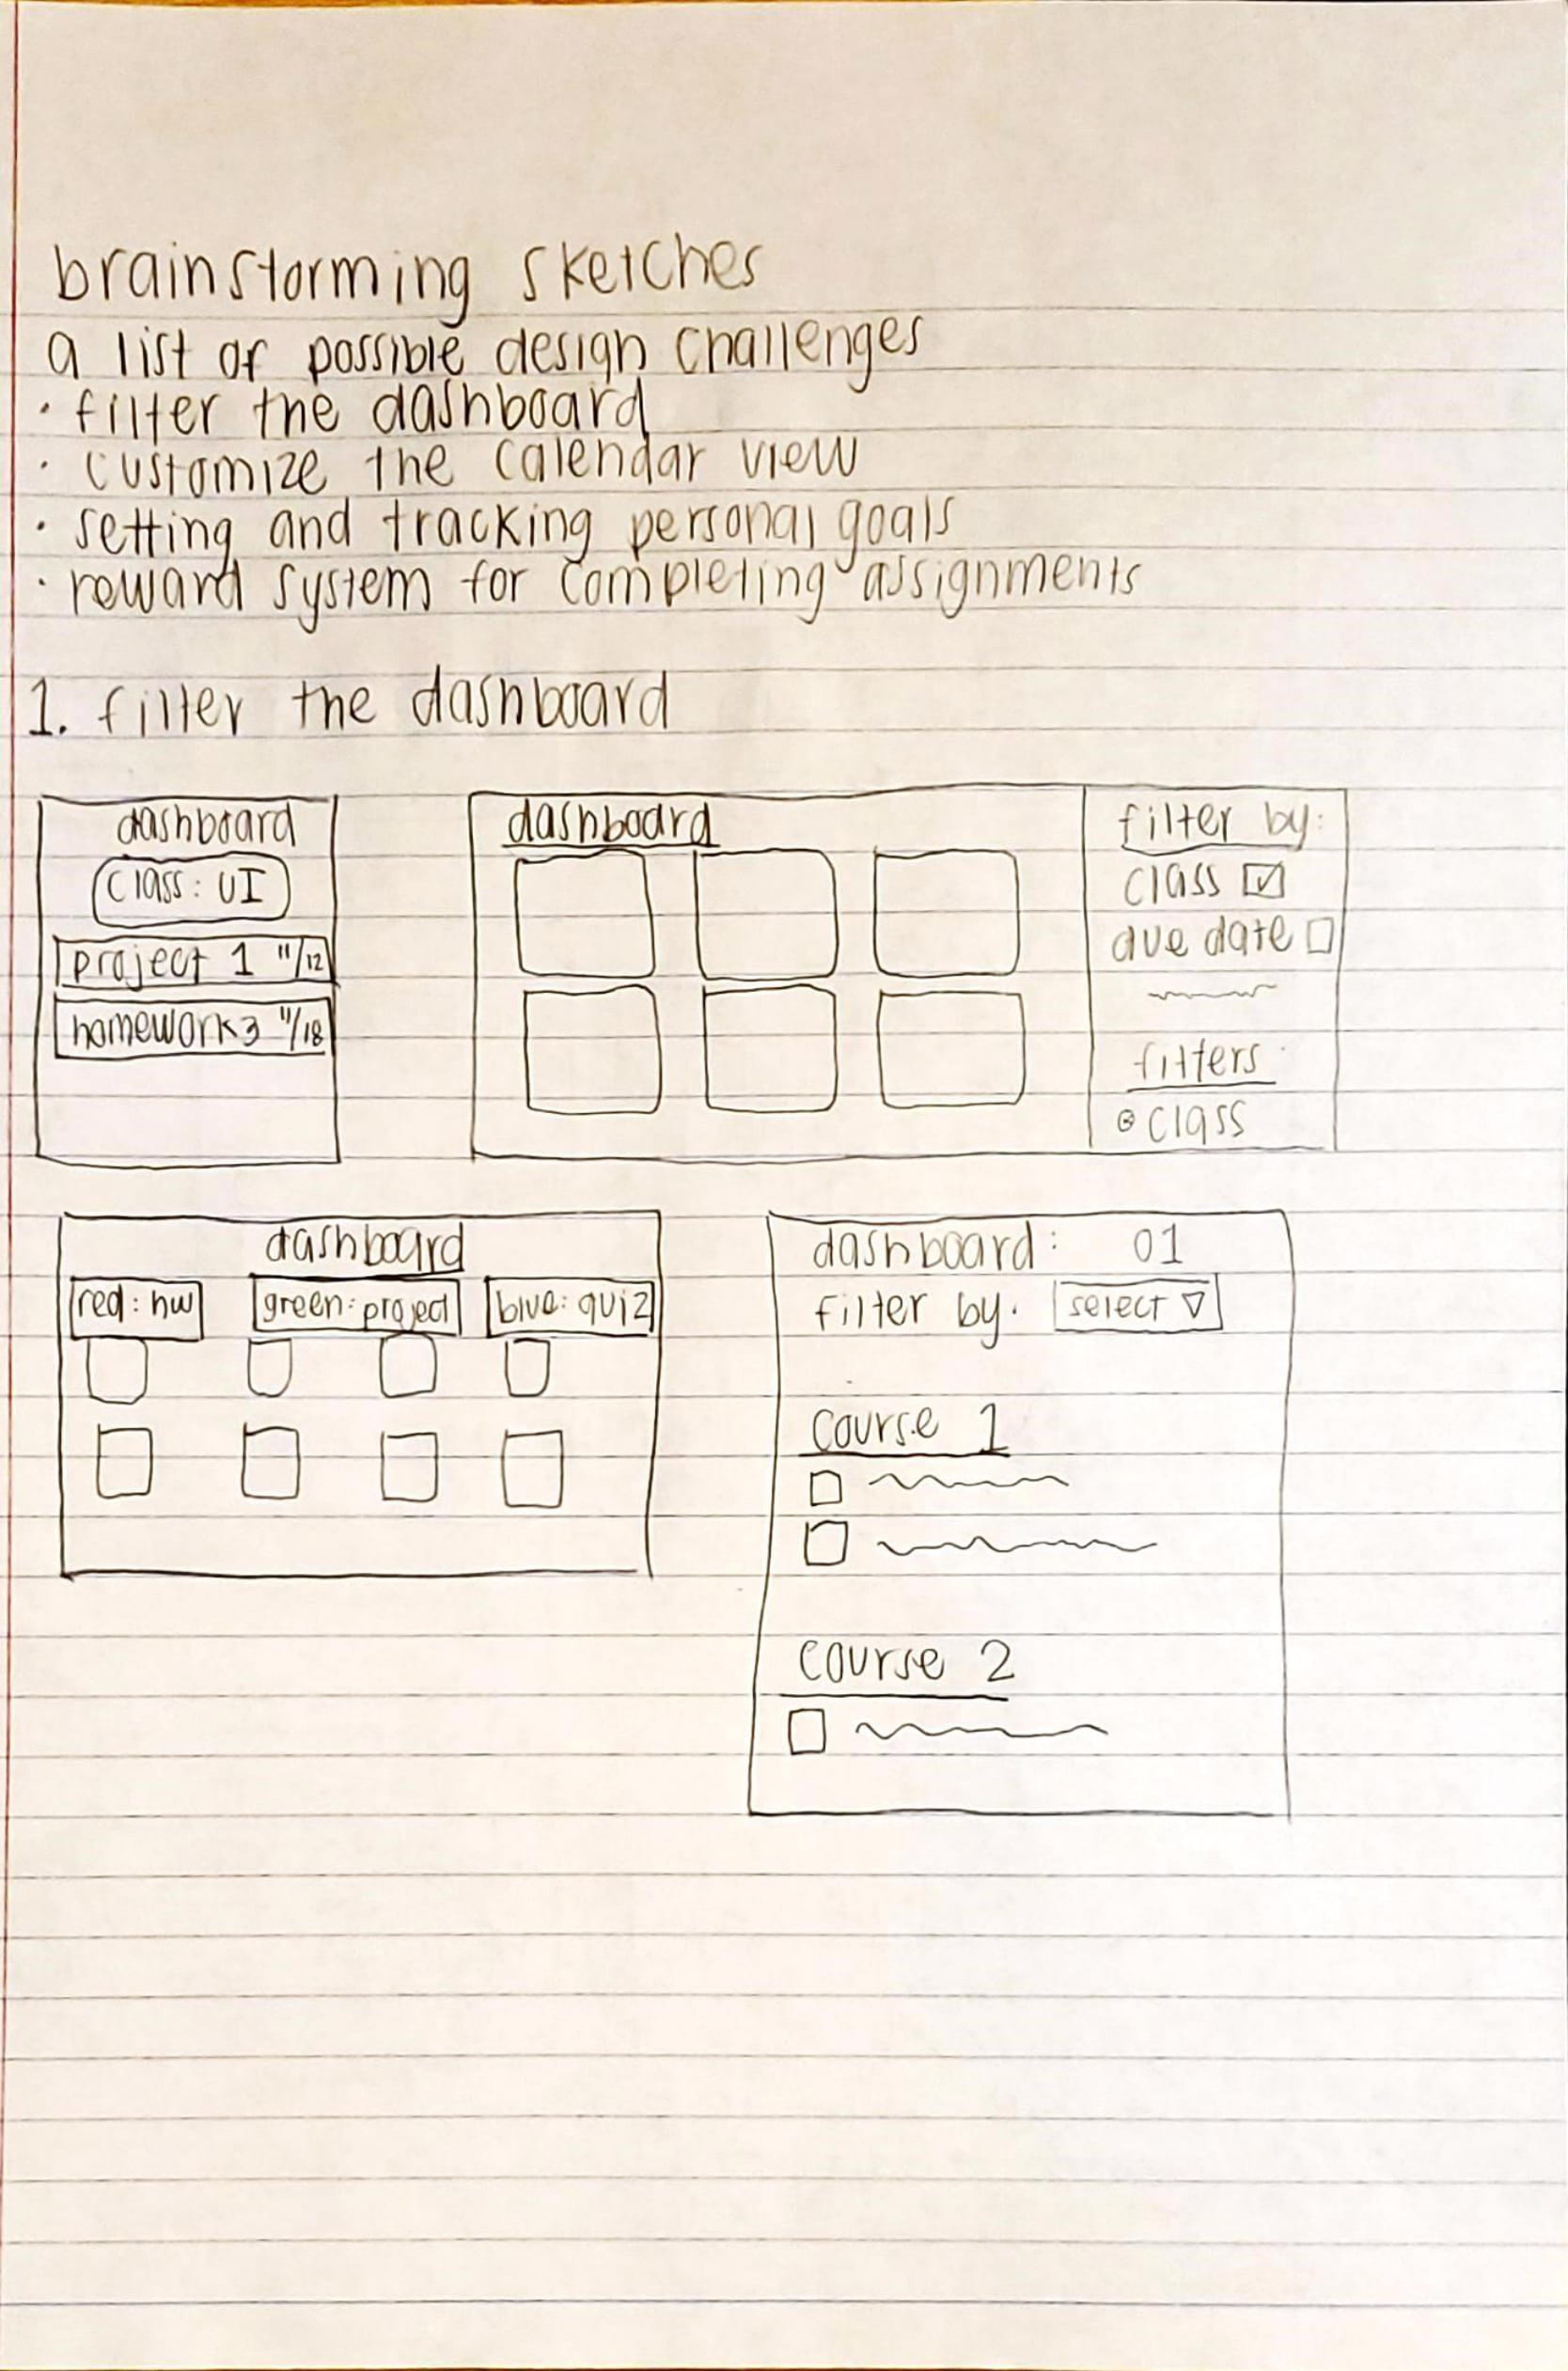 brainstorming sketches
a list of possible design challenges
· filter the dashboard
· customize the calendar view
· setting and tracking personal goals
· reward system for completing assignments
1. filter the dashboard
dashboard
class: UI
project 1 11/12
homework 3 11/18
dashboard
filter by:
class
due date
filters
⊗ class
dashboard
red: hw
green: project
blue: quiz
dashboard: 01
filter by. select ▽
course 1
course 2